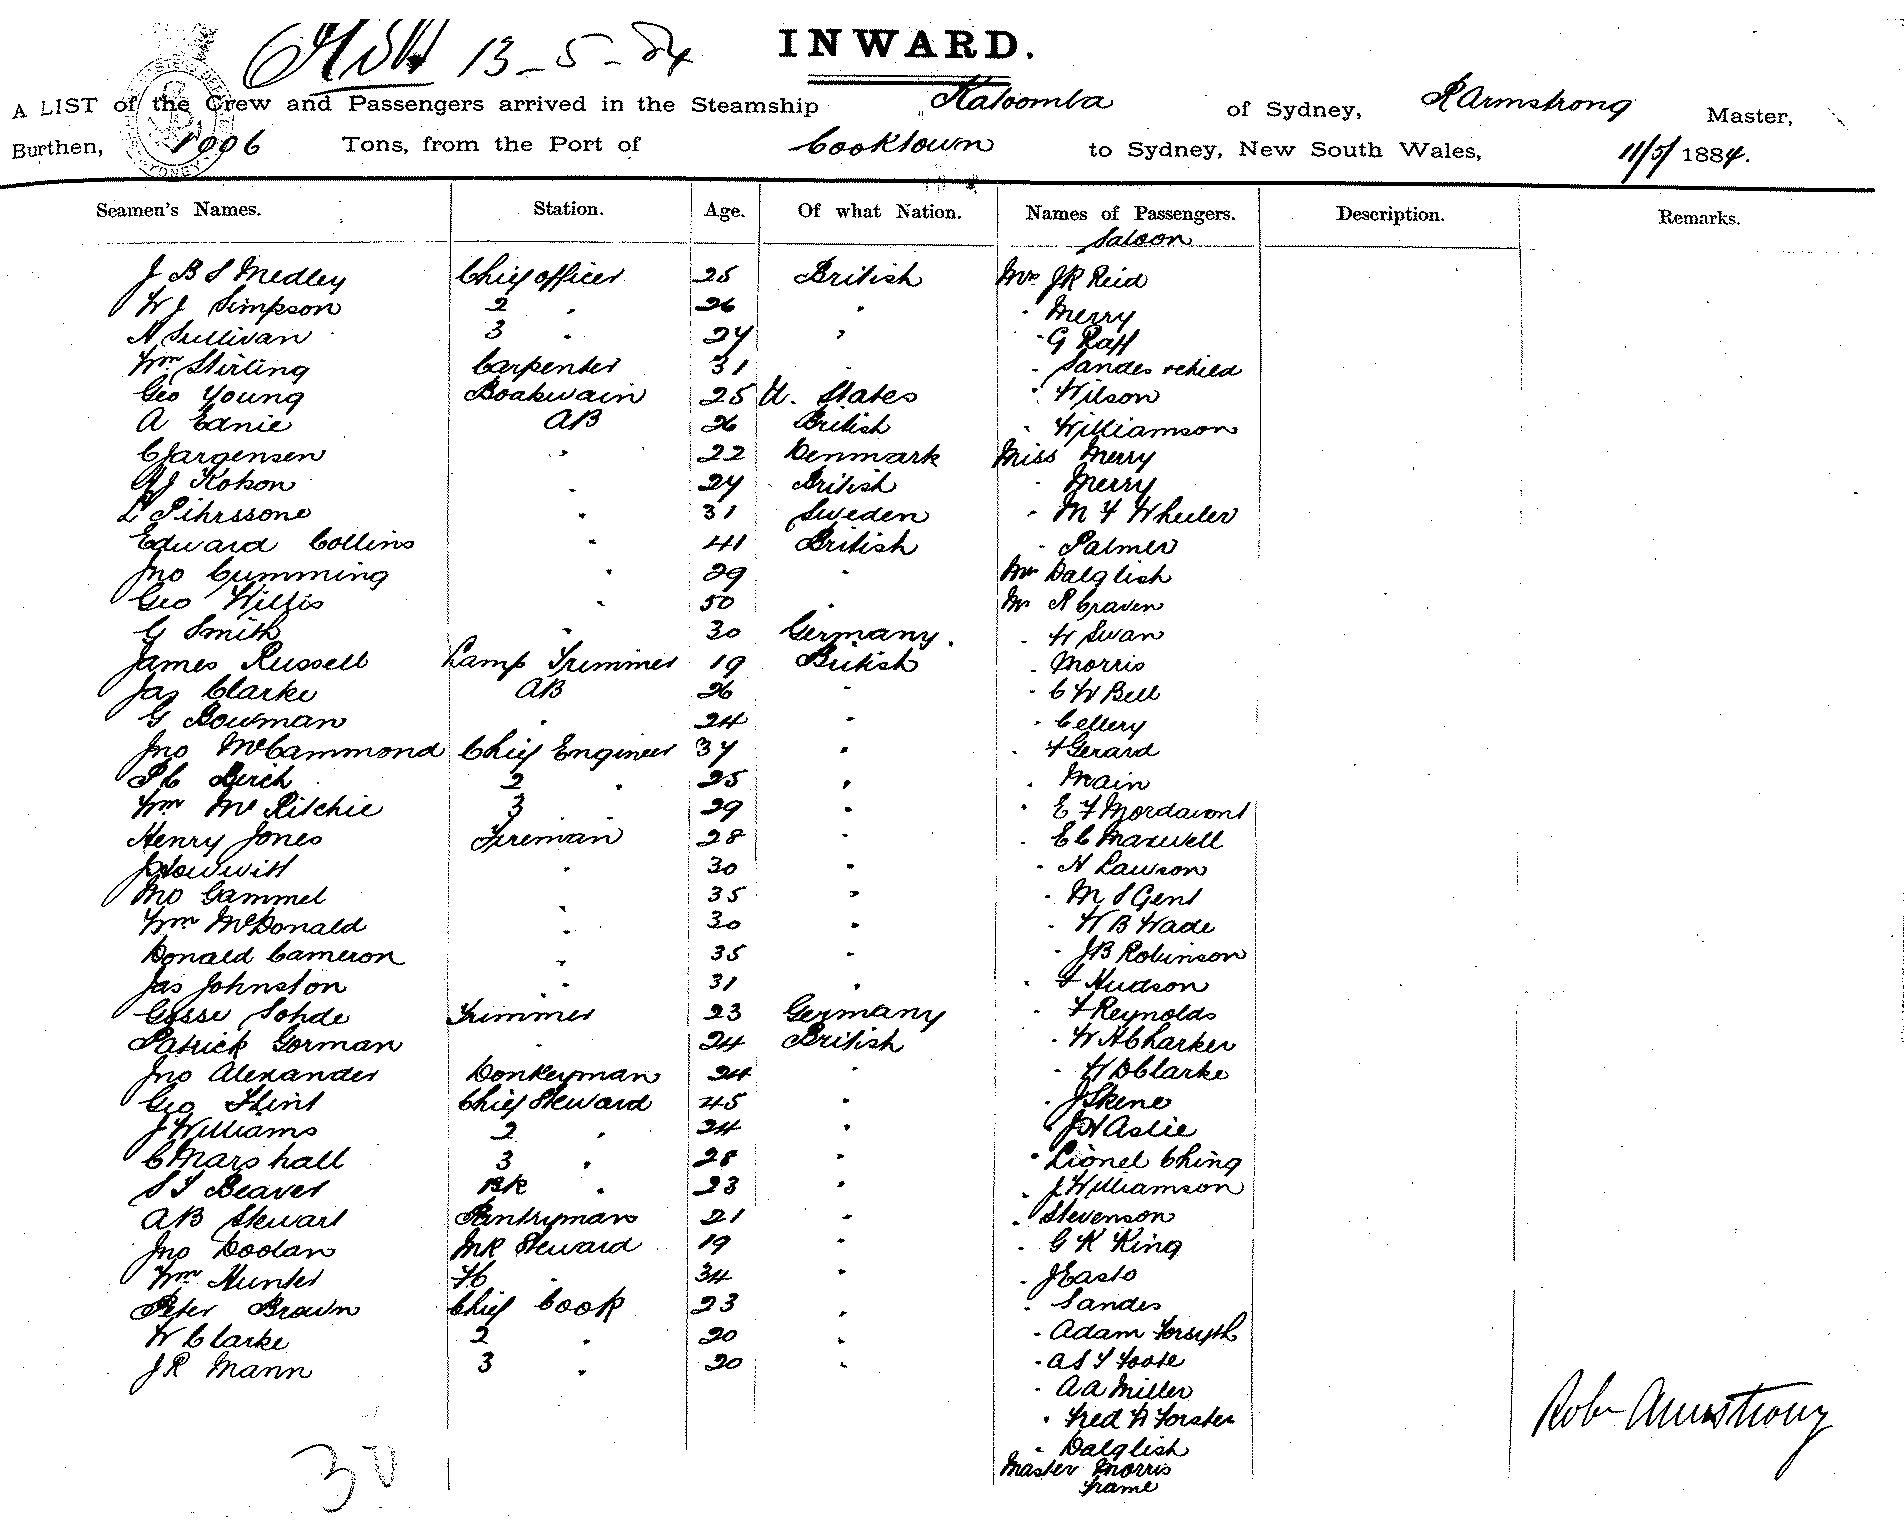 13-5-84 INWARD.
A LIST of the Crew and Passengers arrived in the Steamship Katoomba of Sydney, R Armstrong Master,
Burthen, 1006 Tons, from the Port of Cooktown to Sydney, New South Wales, 11/5/ 1884.
Seamen's Names. Station. Age. Of what Nation. Names of Passengers. Description. Remarks.
Saloon
J B S Medley Chief officer 25 British Mrs J R Reid
W J Simpson 2 " 26 " " Merry
H Sullivan 3 " 27 " " G Raff
Wm Stirling Carpenter 31 " Sandes & child
Geo Young Boatswain 25 U. States " Wilson
A Ednie AB 26 British " Williamson
C Jargensen " 22 Denmark Miss Merry
A J Kobson " 27 British " Merry
L Pihrssone " 31 Sweden " M F Wheeler
Edward Collins " 41 British " Palmer
Jno Cumming " 29 " Mrs Dalglish
Geo Willis " 50 " Mr R Craven
G Smith " 30 Germany. " W Swan
James Russell Lamp Trimmer 19 British " Morris
Jas Clarke AB 26 " " C W Bell
G Bowman " 24 " " Cellery
Jno McCammond Chief Engineer 37 " " F Gerard
P C Birch 2 " 25 " " Main
Wm McRitchie 3 29 " " E F Mordaunt
Henry Jones Fireman 28 " " E C Maxwell
J Howitt " 30 " " H Lawson
Jno Gammel 35 " " M S Gent
Wm McDonald " 30 " " W B Wade
Donald Cameron " 35 " " J B Robinson
Jas Johnston " 31 " " F Hudson
Gosse Sohde Trimmer 23 Germany " F Reynolds
Patrick Gorman " 24 British " W H Charker
Jno Alexander Donkeyman 24 " " W D Clarke
Geo Flint Chief Steward 45 " " J Skene
J Williams 2 " 24 " " J H Aslie
C Marshall 3 " 28 " " Lionel Ching
S T Beaver BK " 23 " " J Williamson
A B Stewart Pantryman 21 " " Stevenson
Jno Doolan MR Steward 19 " " G K King
Wm Hunter " 34 " " J Easto
Peter Brown Chief Cook 23 " " Sandes
W Clarke 2 " 20 " " Adam Forsyth
J R Mann 3 " 20 " " A S T Foote
" A A Miller
" Fred W Forster
" Dalglish
Master Morris
Frame
Robr Armstrong
30